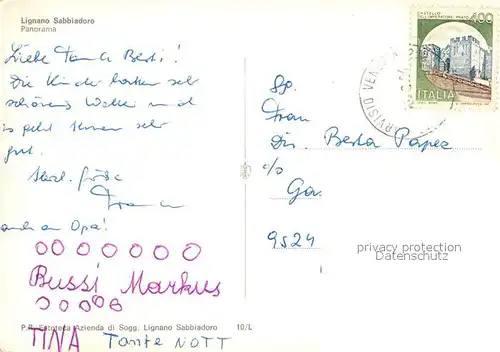 Lignano Sabbiadoro
Panorama
Liebe Tante Berti!
Die Kinder haben sehr
schönes Wetter und
es geht ihnen sehr
gut.
Herzl. Grüße
auch an Opa!
OOOOOOO
Bussi Markus
OOOOO
P.R. Fototeca Azienda di Sogg. Lignano Sabbiadoro 10/L
TINA Tante NOTT
CASTELLO
DELL'IMPERATORE PRATO
400
ITALIA
Frau
Berta
c/o
9524
privacy protection
Datenschutz